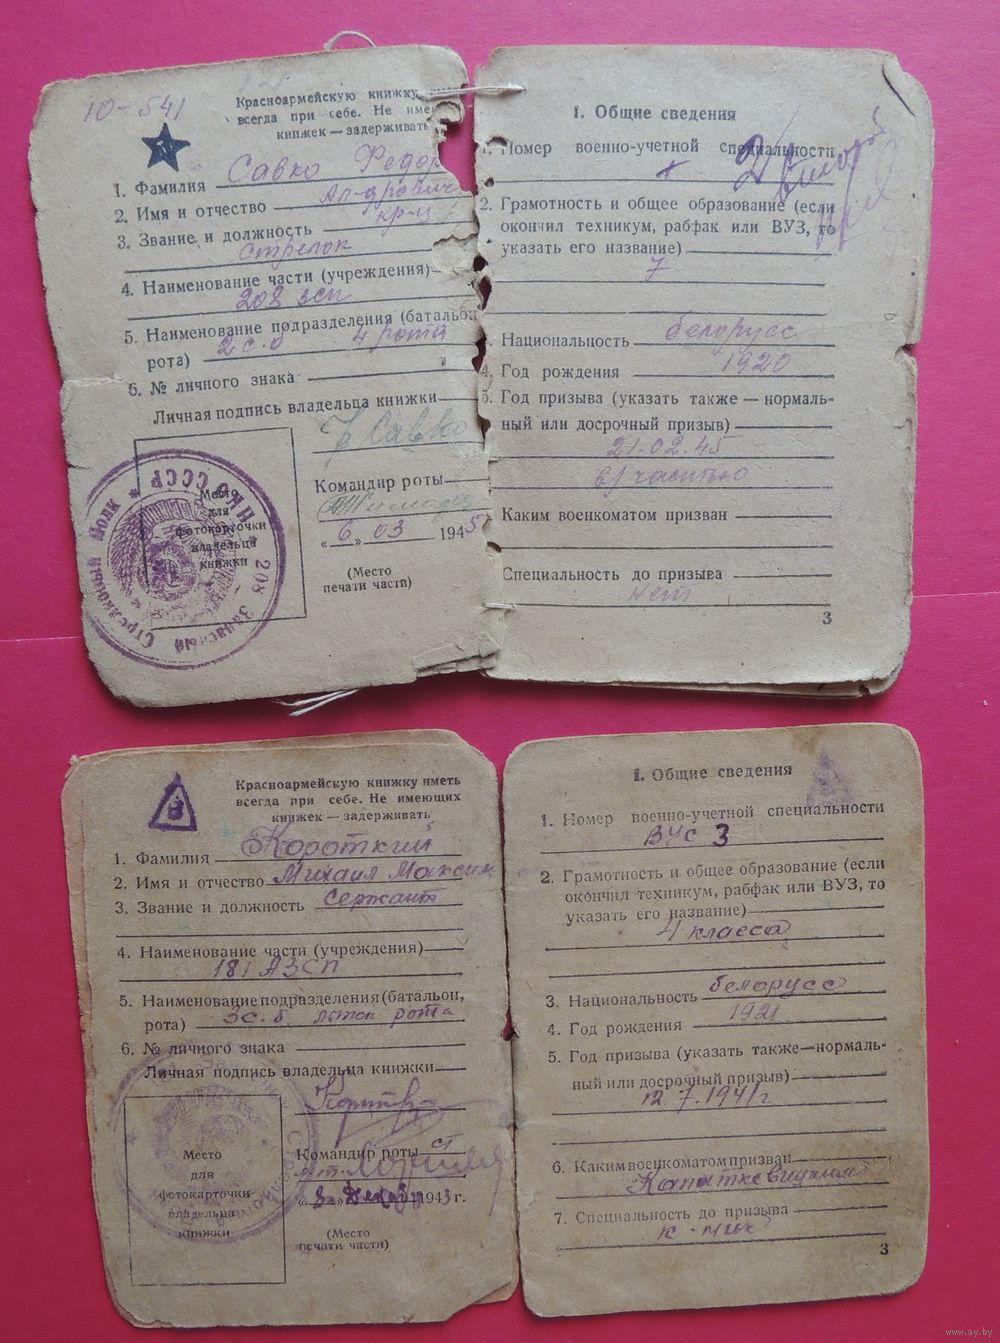 10-541
Красноармейскую книжку
всегда при себе. Не име
книжек — задерживать
1. Фамилия Савко Федор
2. Имя и отчество
3. Звание и должность кр-ц
стрелок
4. Наименование части (учреждения)
208 зсп
5. Наименование подразделения (батальон
рота) 2 с.б 4 рота
6. № личного знака
Личная подпись владельца книжки
Савко
Место
для
фотокарточки
владельца
книжки
НКО СССР * 208 Запасный Стрелковый Полк *
Командир роты
«6» 03 1945
(Место
печати части)
I. Общие сведения
1. Номер военно-учетной специальности
2. Грамотность и общее образование (если
окончил техникум, рабфак или ВУЗ, то
указать его название)
7
Национальность белорусс
4. Год рождения 1920
5. Год призыва (указать также — нормаль-
ный или досрочный призыв)
21.02.45
в/частью
Каким военкоматом призван
Специальность до призыва
нет
3
В
Красноармейскую книжку иметь
всегда при себе. Не имеющих
книжек — задерживать
1. Фамилия Короткий
2. Имя и отчество Михаил Максим
3. Звание и должность Сержант
4. Наименование части (учреждения)
181 АЗСП
5. Наименование подразделения (батальон,
рота) 3 с.б. рота
6. № личного знака
Личная подпись владельца книжки
Командир роты ст
«8» Декабр 1943 г.
Место
для
фотокарточки
владельца
книжки
(Место
печати части)
I. Общие сведения
1. Номер военно-учетной специальности
ВУС 3
2. Грамотность и общее образование (если
окончил техникум, рабфак или ВУЗ, то
указать его название)
4 класса
3. Национальность белорусс
4. Год рождения 1921
5. Год призыва (указать также — нормаль-
ный или досрочный призыв)
12.7.1941 г
6. Каким военкоматом призван
7. Специальность до призыва
3
www.ay.by